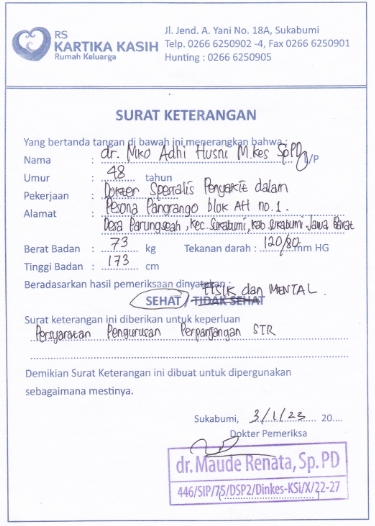 RS
KARTIKA KASIH
Rumah Keluarga
Jl. Jend. A. Yani No. 18A, Sukabumi
Telp. 0266 6250902 -4, Fax 0266 6250901
Hunting : 0266 6250905
SURAT KETERANGAN
Yang bertanda tangan di bawah ini menerangkan bahwa :
Nama : dr. Niko Adhi Husni M.Kes SpPD L/P
Umur : 48 tahun
Pekerjaan : Dokter Spesialis Penyakit dalam
Alamat : Pesona Pangrango blok AH no. 1.
Desa Parungseah, Kec. Sukabumi, Kab Sukabumi Jawa Barat
Berat Badan : 73 kg Tekanan darah : 120/80 mm HG
Tinggi Badan : 173 cm
Beradasarkan hasil pemeriksaan dinyatakan :
FISIK dan MENTAL.
SEHAT / TIDAK SEHAT
Surat keterangan ini diberikan untuk keperluan
Persyaratan Pengurusan Perpanjangan STR
Demikian Surat Keterangan ini dibuat untuk dipergunakan
sebagaimana mestinya.
Sukabumi, 3/1/23 20....
Dokter Pemeriksa
dr. Maude Renata, Sp. PD
446/SIP/75/DSP2/Dinkes-KSi/X/22-27